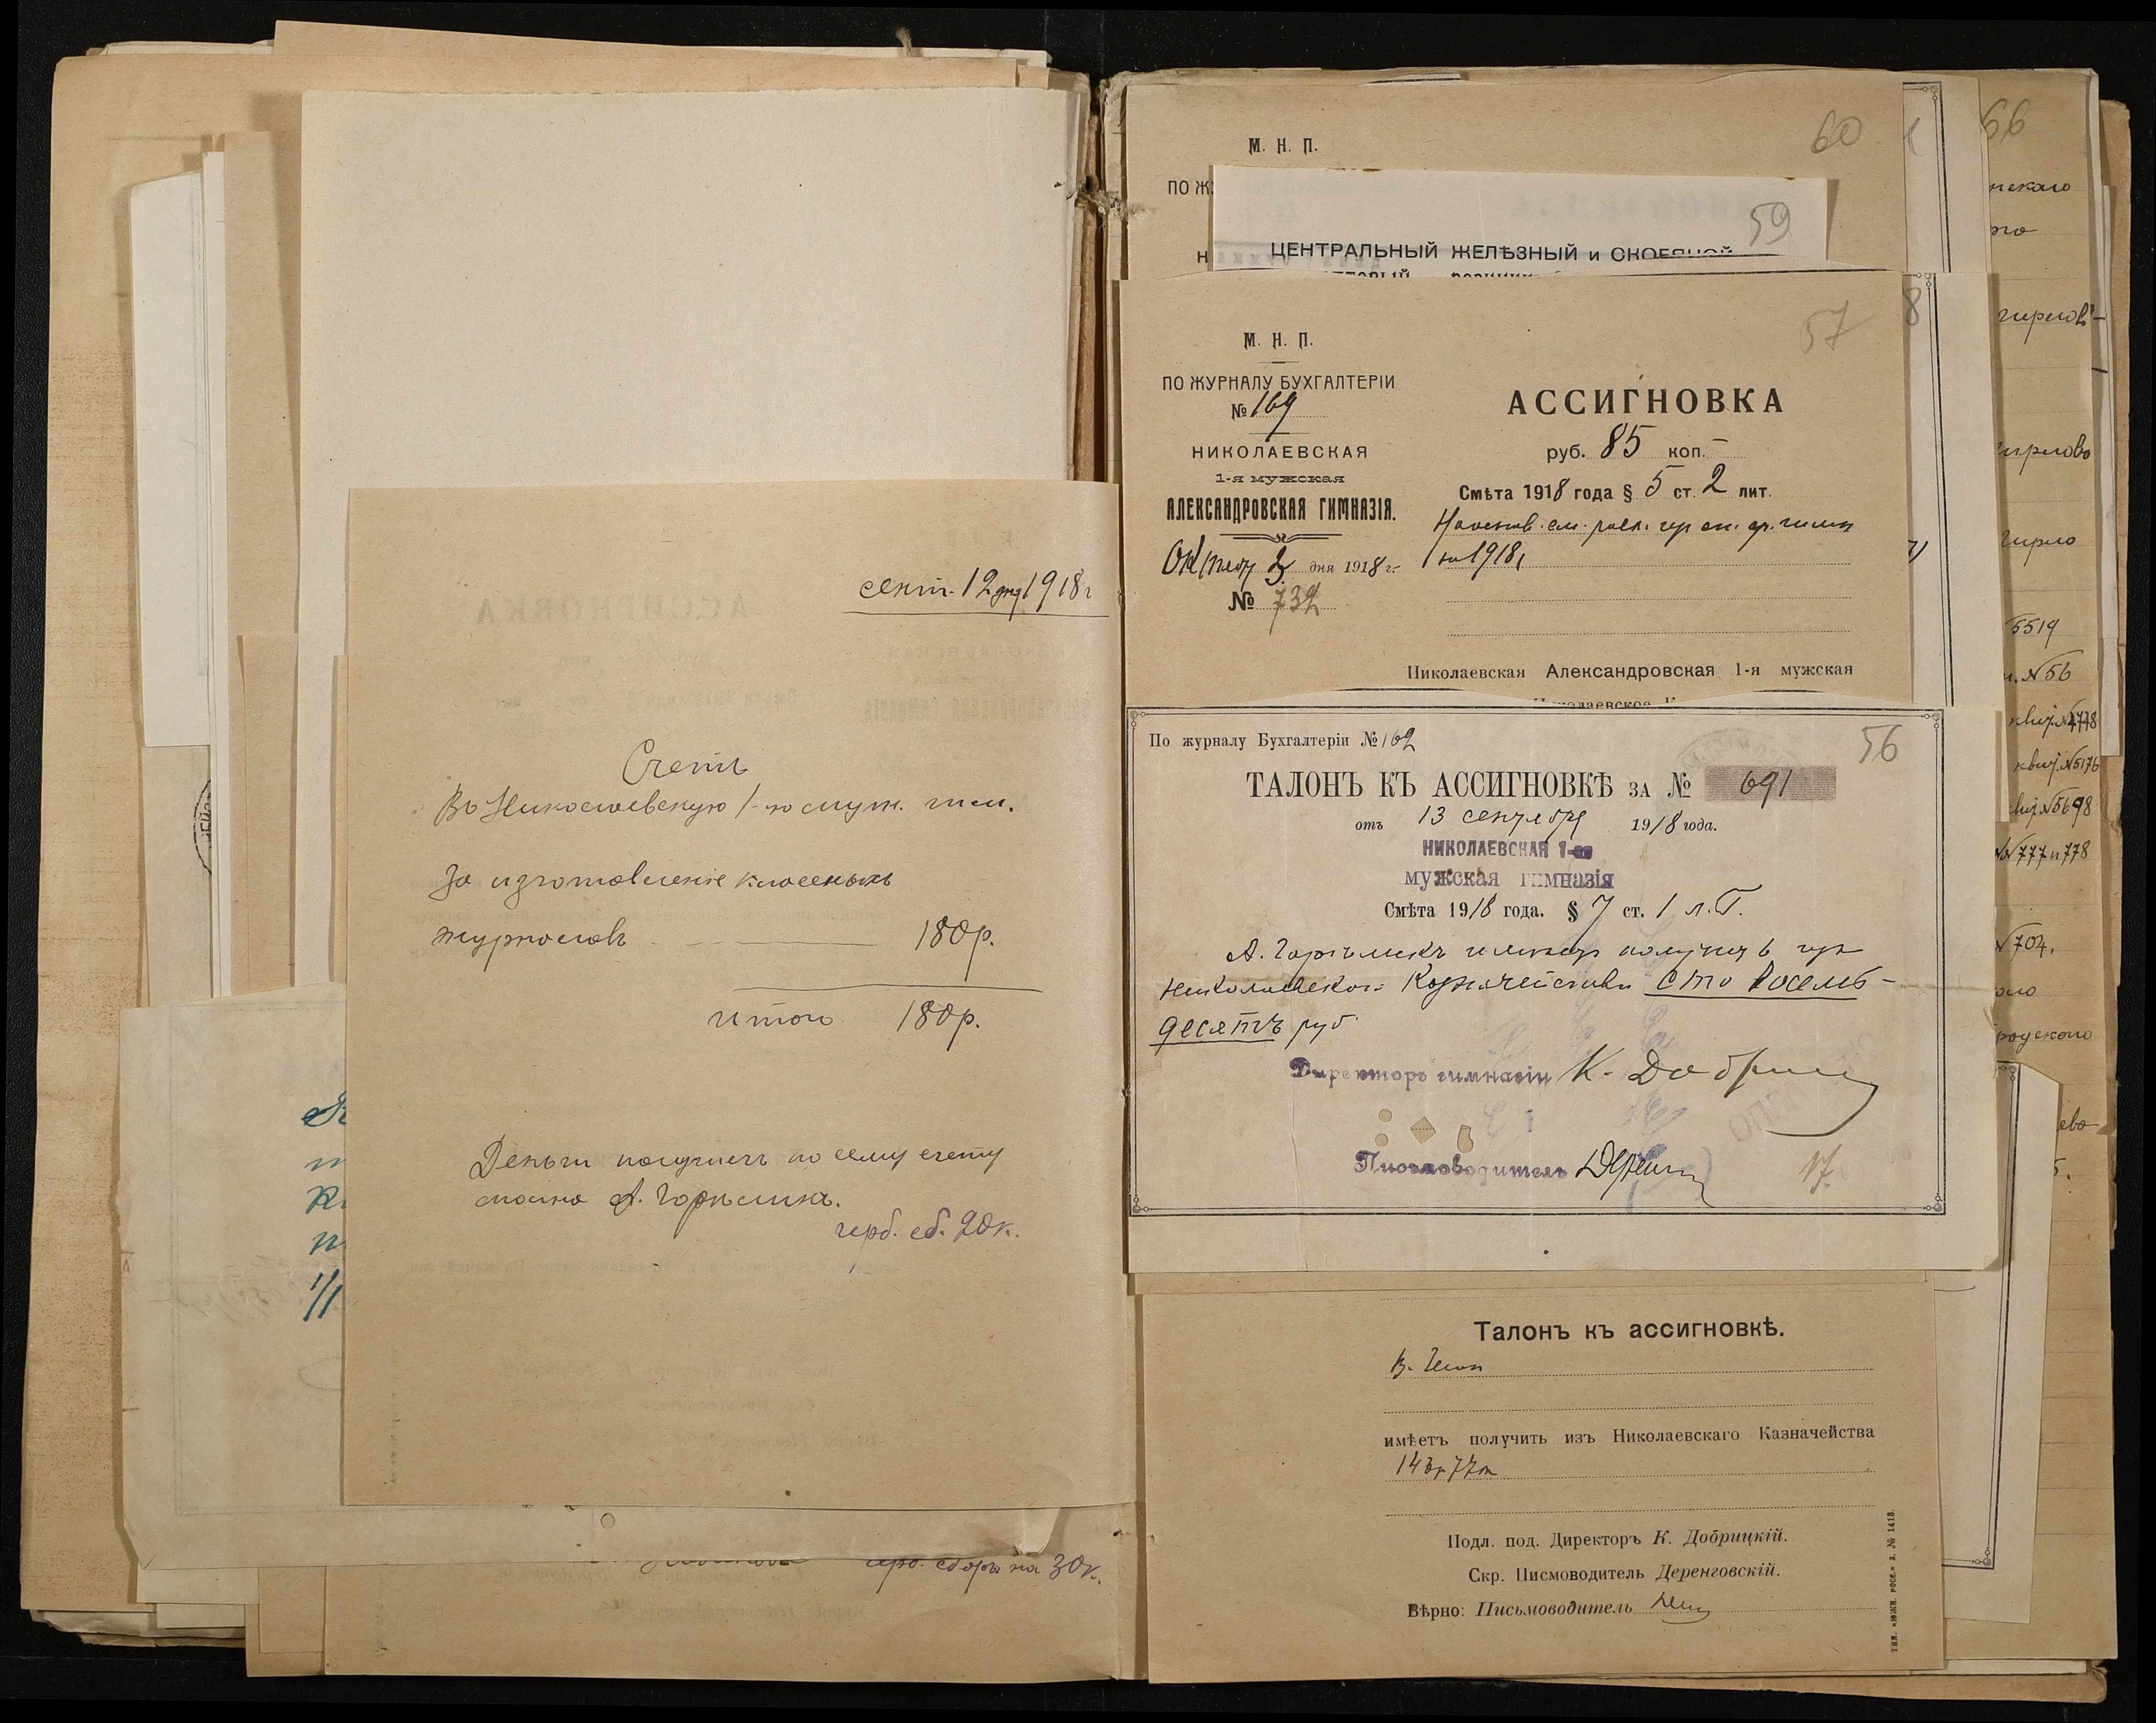 сент. 12 дня 1918 г
Счетъ
Въ Николаевскую 1-ю муж. гим.
За изготовление класеныхъ
журналовъ 180р.
Итого 180р.
Деньги получилъ по сему счету
сполна А. Горѣликъ.
герб. сб. 20к.
герб. сборъ на 30к.
М. Н. П.
60
ПО Ж
59
ЦЕНТРАЛЬНЫЙ ЖЕЛѢЗНЫЙ и СКОБЯНОЙ
57
М. Н. П.
ПО ЖУРНАЛУ БУХГАЛТЕРІИ
№ 169
НИКОЛАЕВСКАЯ
1-я мужская
АЛЕКСАНДРОВСКАЯ ГИМНАЗІЯ.
Октяб 2 дня 1918 г.
№ 732
АССИГНОВКА
руб. 85 коп. –
Смѣта 1918 года § 5 ст. 2 лит.
на 1918г
Николаевская Александровская 1-я мужская
56
По журналу Бухгалтеріи № 162
ТАЛОНЪ КЪ АССИГНОВКѢ ЗА № 691
отъ 13 сентября 1918 года.
НИКОЛАЕВСКАЯ 1-ая
мужская гимназія
Смѣта 1918 года. § 7 ст. 1 л. Г.
А. Горѣликъ имѣетъ получить изъ
Николаевскаго Казначейства сто восемь-
десятъ руб
Директоръ гимназіи К. Добрицкій
Письмоводитель
17.
Талонъ къ ассигновкѣ.
имѣетъ получить изъ Николаевскаго Казначейства
143р 77к
Подл. под. Директоръ К. Добрицкій.
Скр. Писмоводитель Деренговскій.
Вѣрно: Письмоводитель
тип. «южн. росс.» з. № 1413.
66
нскаго
5519
№ 56
квит. №4778
квит. №5176
№5698
№777 и 778
№704.
родского